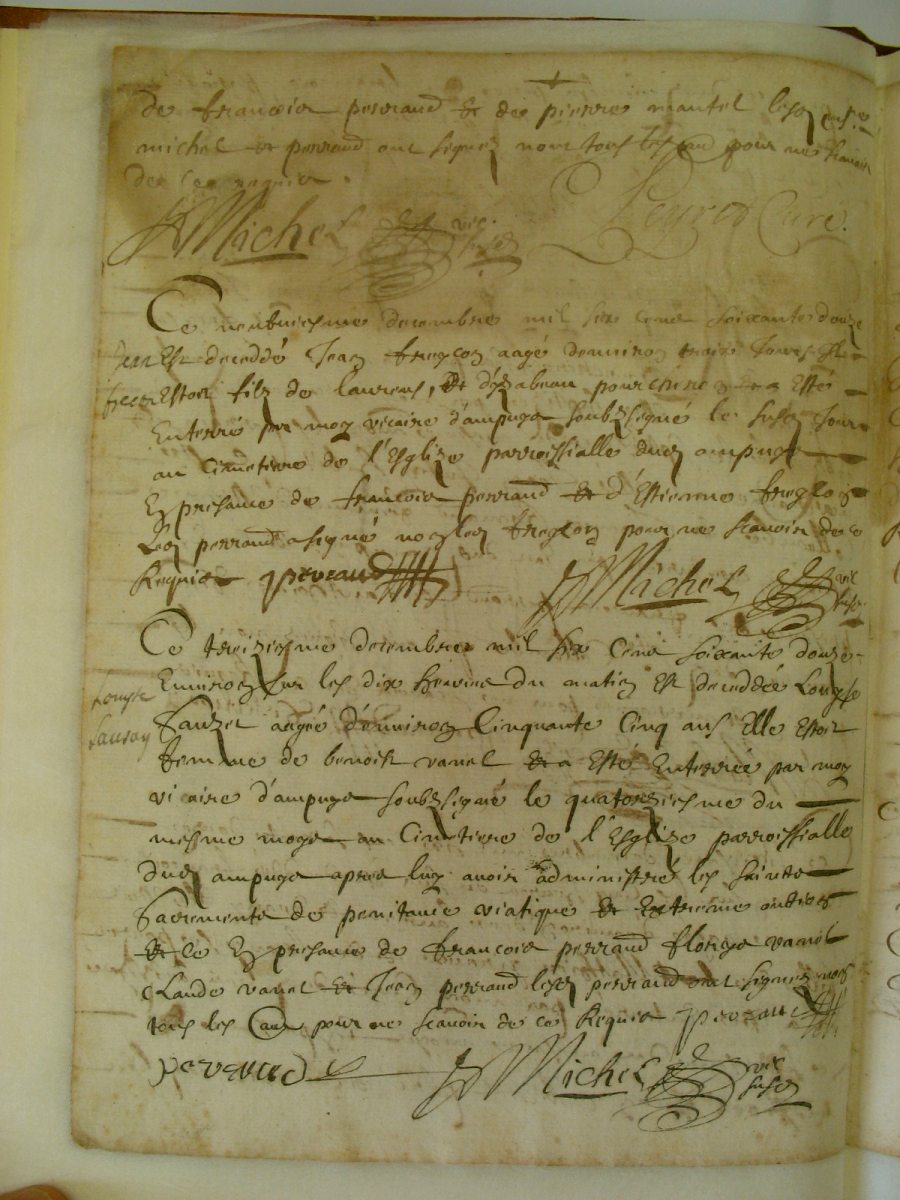 de francois perraud et de pierre mantel lesd
michel et perraud ont signez non tous les pour ne scavoir
de ce requis.
Michel vic susd Curé.
Ce neufviesme decembre mil six cens soixante douze
Jean Est deceddé Jean freycon aagé denviron trois Jours Il
Estoit filz de laurens, et d'yzabeau pourchine et a Esté
Enterré par moy vicaire d'ampuys soubzsigné le susd Jour
au Cimetiere de l'Esglize parroissialle dud ampuys
En presance de francois perraud et d'Estienne
Led perraud a signé non led pour ne scavoir de ce
Requis perraud Michel vic susd
Ce treiziesme decembre mil six Cens soixante douze
Environ sur les dix heures du matin Est deceddée Louyse
Louyse
Sauzet aagée d'environ Cinquante Cinq ans Elle Estoit
Sauzay
femme de benoist vanel et a Esté Enterrée par moy
vicaire d'ampuys soubzsigné le quatorziesme du
mesme moys au Cimetiere de l'Esglize parroissialle
dud ampuys apres luy avoir administré les saints
Sacrements de penitance viatique et Extreme onction
et ce En presance de francois perraud vanel
Claude vanel et Jean perraud lesd perraud ont signez non
tous les pour ne scavoir de ce Requis perraud
perraud Michel vic susd